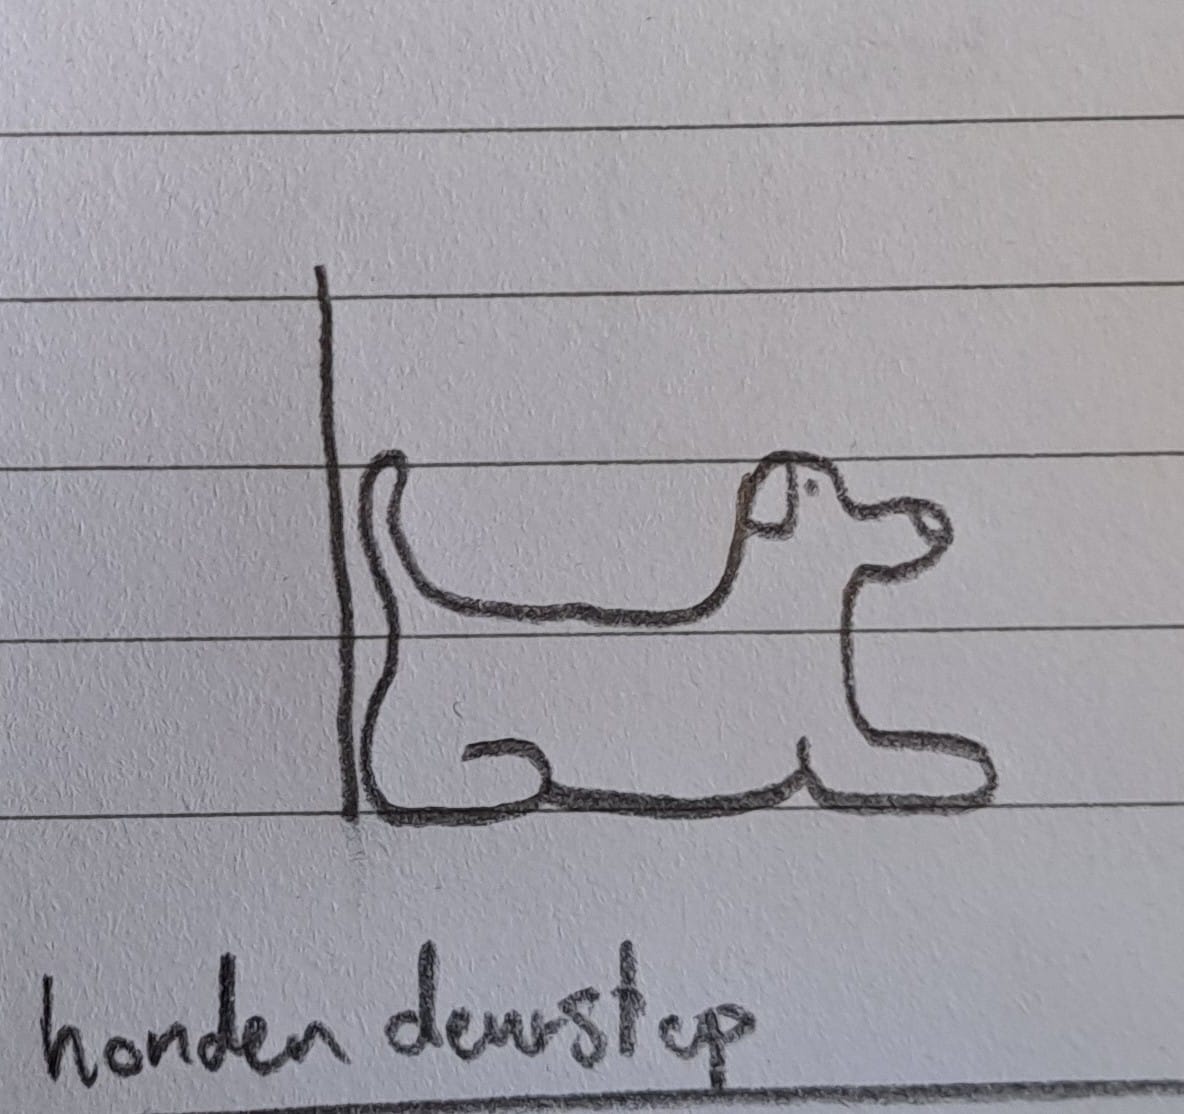 honden deurstop